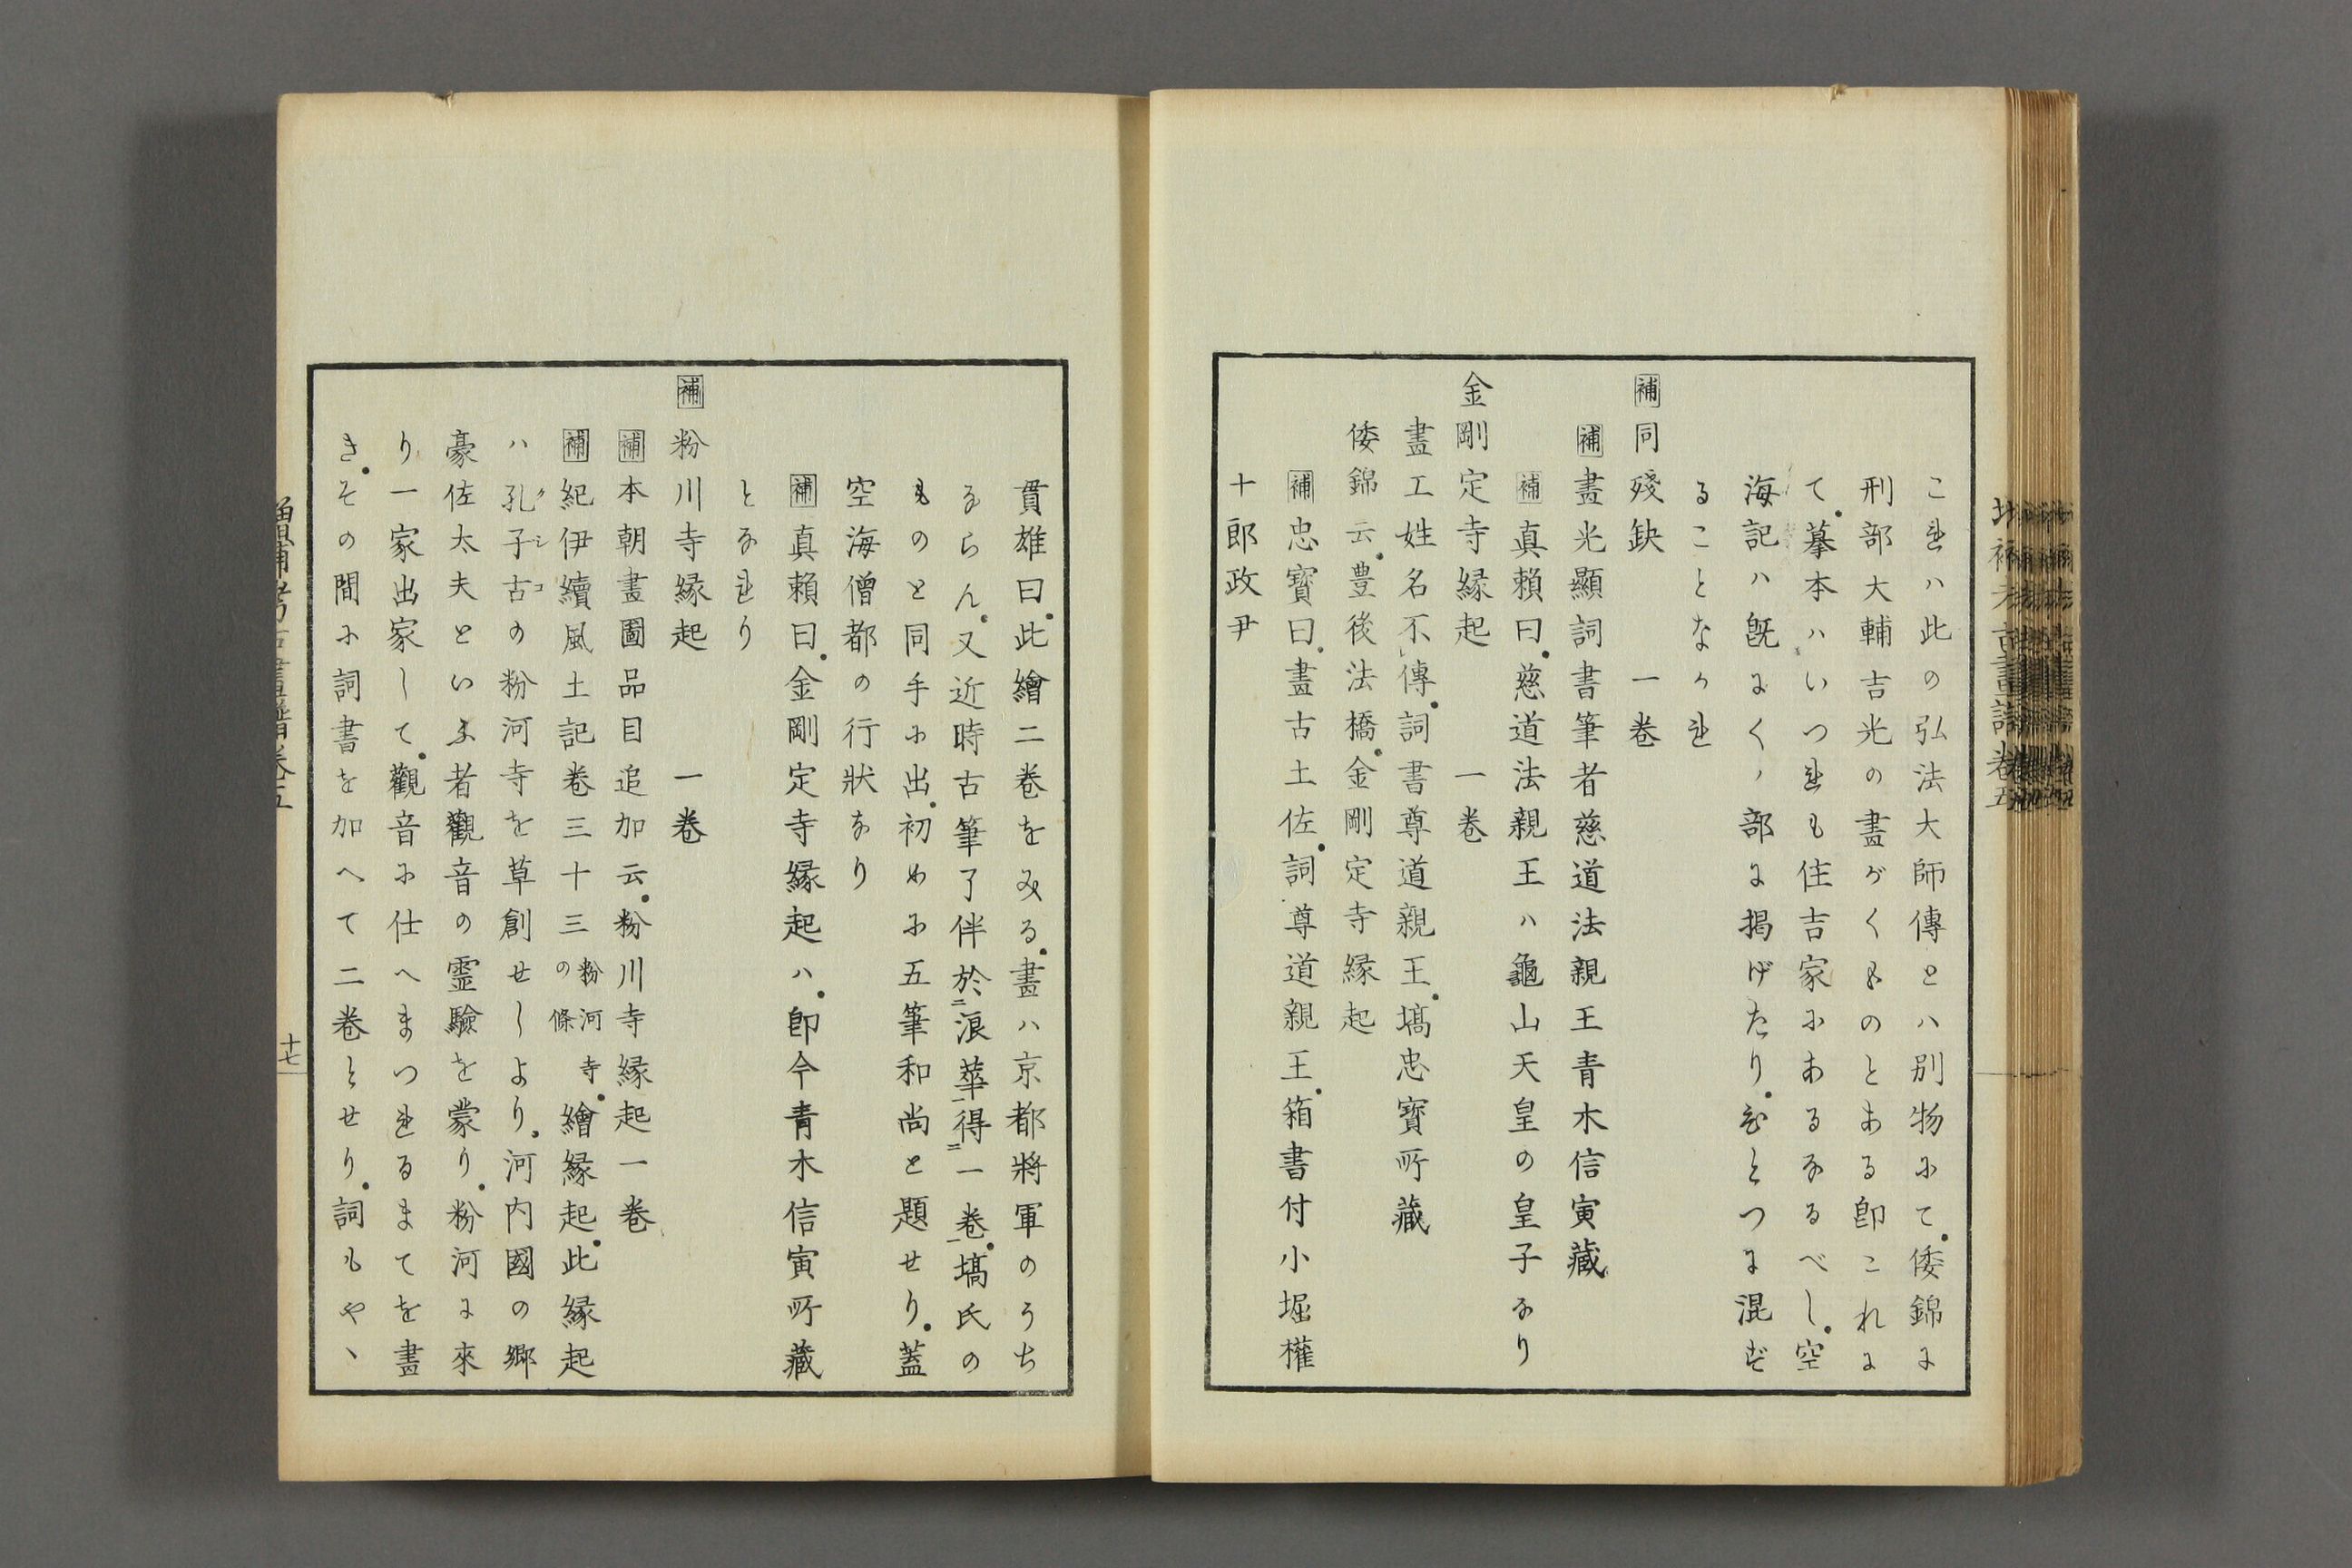 これハ此の弘法大師傳とハ別物にて倭錦に
刑部大輔吉光の畫がくものとある卽これに
て摹本ハいつれも住吉家にあるなるべし空
海記ハ既にくノ部に掲げたりひとつに混ず
ることなかれ
補同殘缺　一卷
補畫光顯詞書筆者慈道法親王青木信寅藏
補真賴曰慈道法親王ハ龜山天皇の皇子なり
金剛定寺縁起　一卷
畫工姓名不傳詞書尊道親王塙忠寶所藏
倭錦云豊後法橋金剛定寺縁起
補忠寶曰畫古土佐詞尊道親王箱書付小堀權
十郎政尹
貫雄曰此繪二卷をみる畫ハ京都將軍のうち
ならん又近時古筆了伴於浪華得一卷塙氏の
ものと同手に出初めに五筆和尚と題せり蓋
空海僧都の行狀なり
補真賴曰金剛定寺縁起ハ卽今青木信寅所藏
となれり
補粉川寺縁起　一卷
補本朝畫圖品目追加云粉川寺縁起一卷
補紀伊續風土記卷三十三粉河寺の條繪縁起此縁起
ハ孔子古クシコの粉河寺を草創せしより河内國の鄕
豪佐太夫といふ者觀音の霊驗を蒙り粉河に來
り一家出家して觀音に仕へまつれるまてを畫
きその間に詞書を加へて二卷とせり詞もやヽ
增補考古畫譜卷五
十七